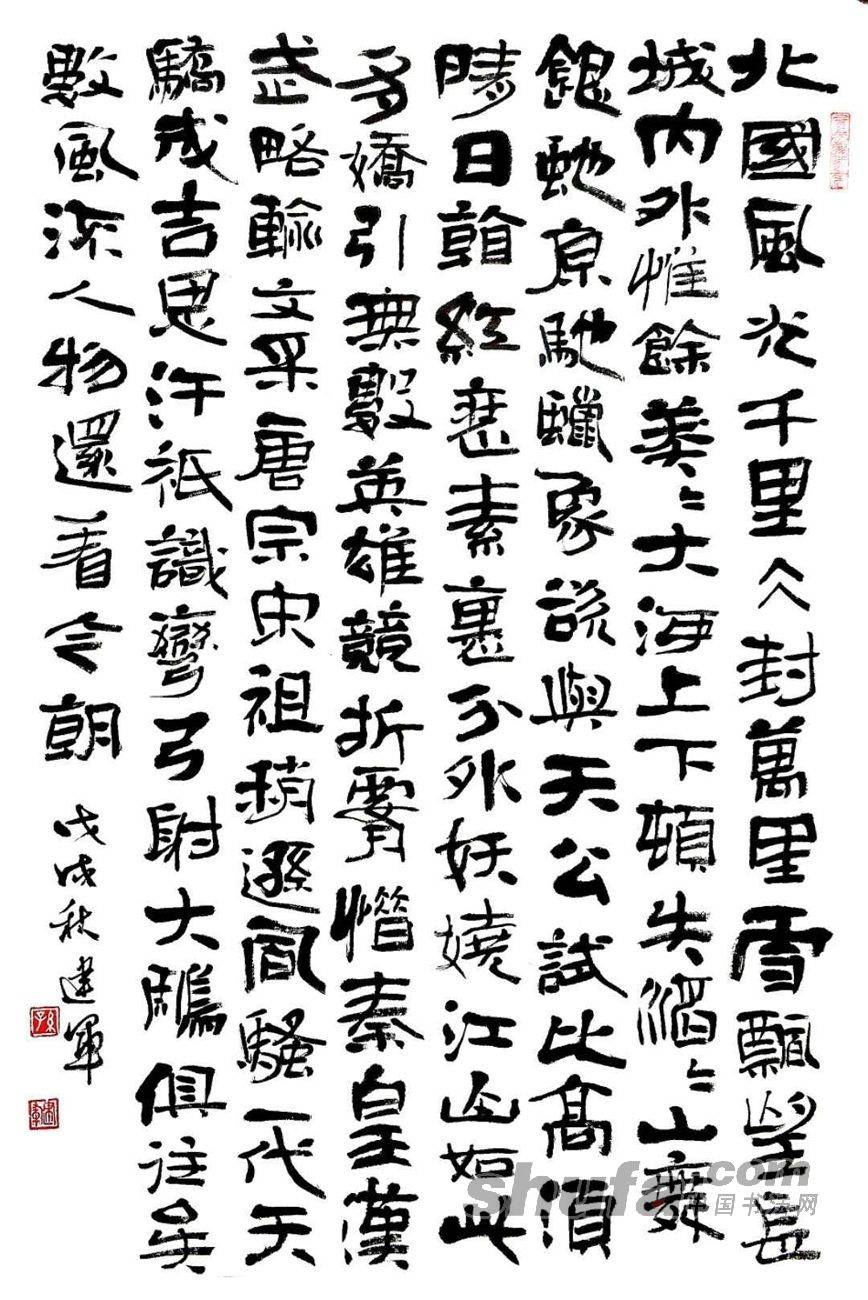 北國風光千里仌封萬里雪飄望長
城内外惟餘莽〻大海上下頓失滔〻山舞
銀虵原馳蠟象說與天公試比高須
晴日看紅裝素裹分外妖嬈江山如此
多嬌引無數英雄競折腰惜秦皇漢
武略輸文采唐宗宋祖稍遜風騷一代天
驕成吉思汗祇識彎弓射大鵰俱往矣
數風流人物還看今朝
戊戌秋建軍
shufa.com
中国书法网